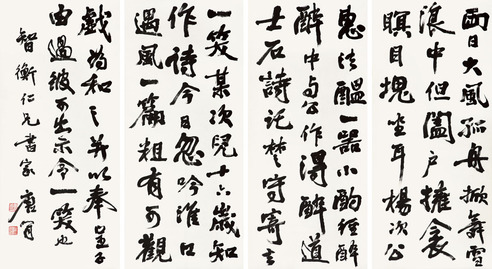 兩日大風孤舟掀舞雪
浪中但闔戶擁衾
瞑目塊坐耳楊次公
惠法醞一器小酌徑醉
醉中与公作得醉道
士石詩託楚守寄去
一笑某次兒十六歲知
作詩今日忽吟淮口
遇風一篇粗有可觀
戲為和之并以奉呈子
由過彼可出示令一笑也
智衡仁兄書家